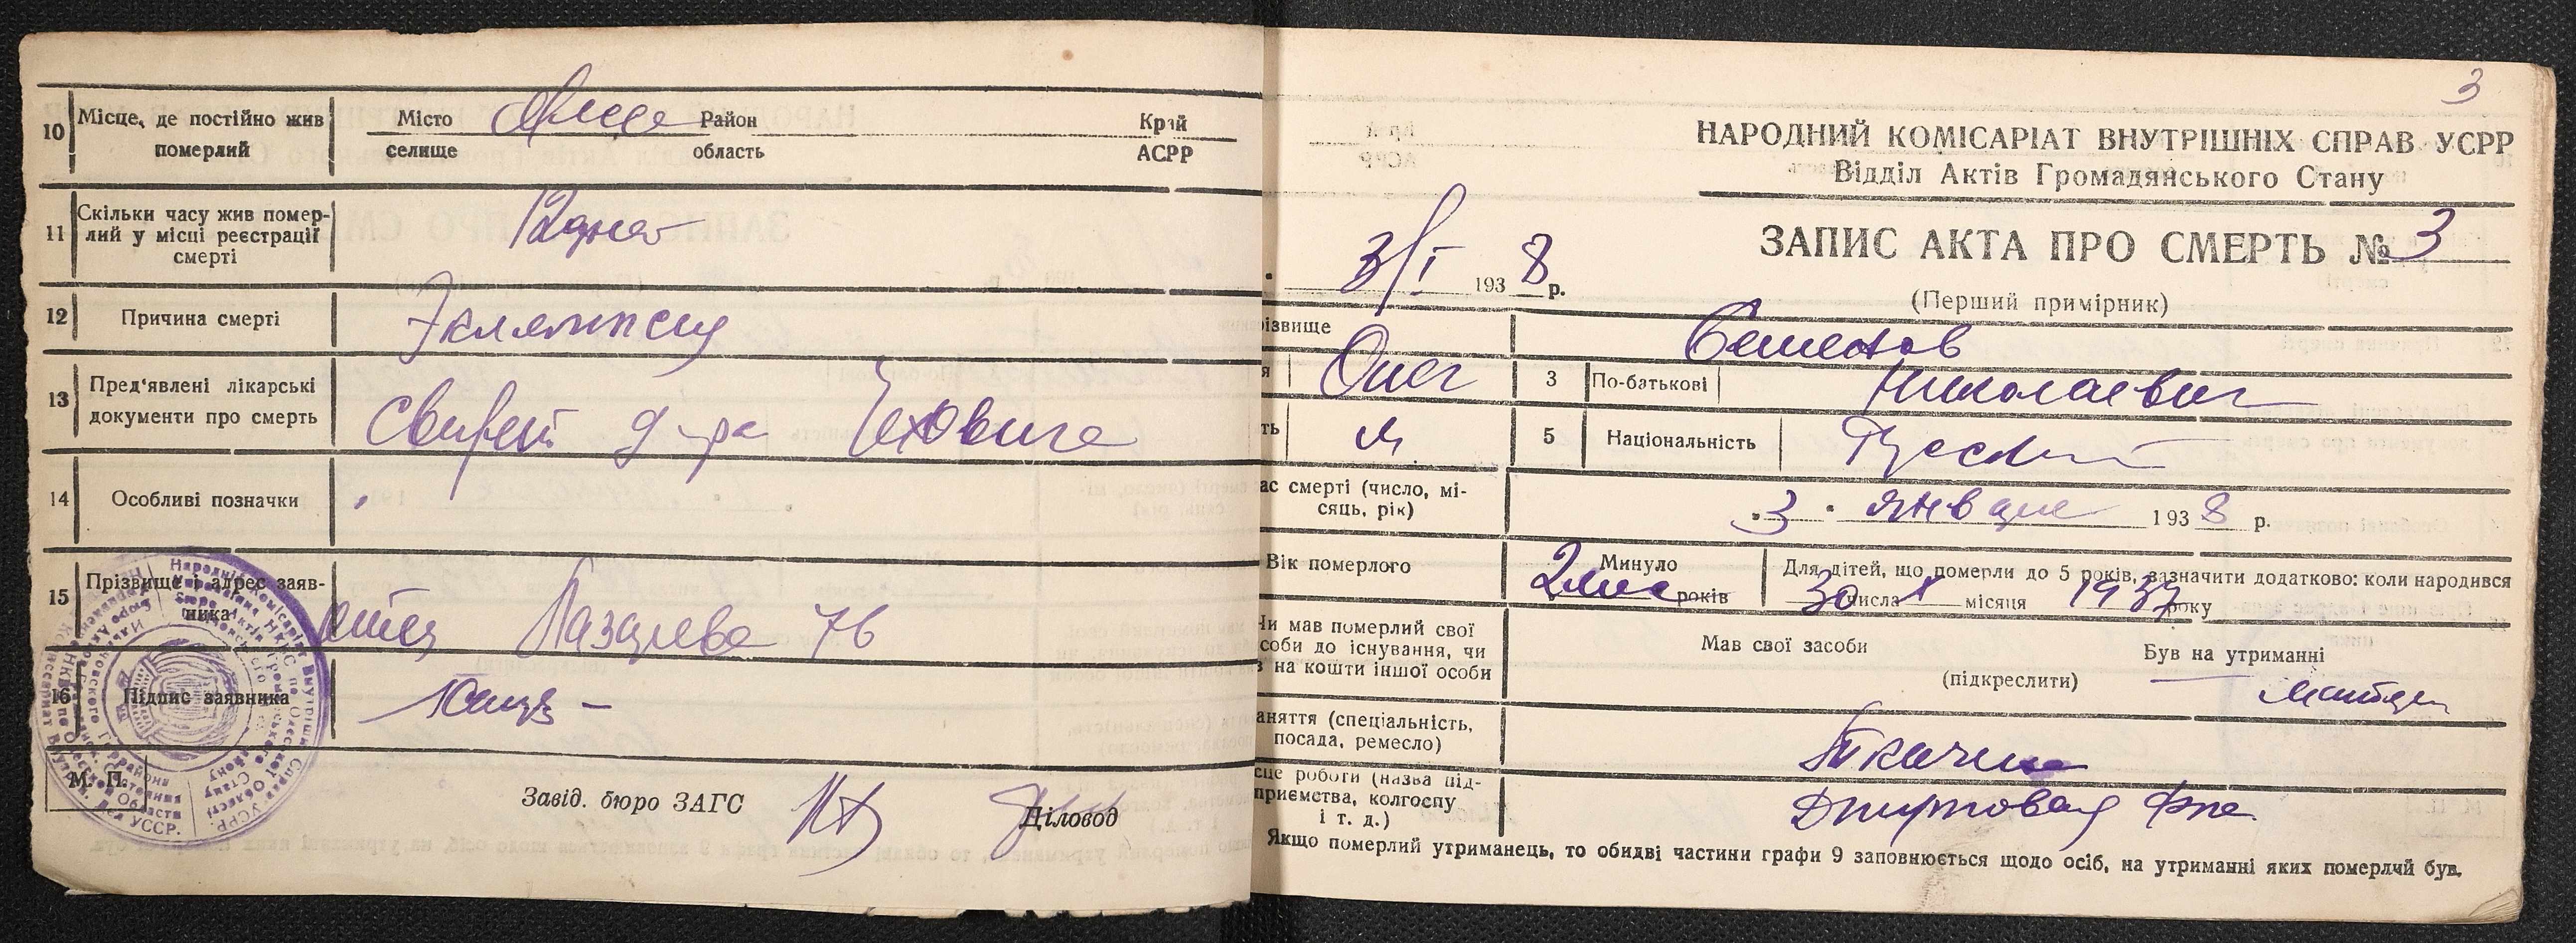 10 Місце, де постійно жив померлий
Місто селище Район область Край АСРР
11 Скільки часу жив померлий у місці реєстрації смерті
12 Причина смерті Эклямпсия
13 Пред'явлені лікарські документи про смерть д-ра
14 Особливі позначки
15 Прізвище і адрес заявника отец Лазарева 76
16 Підпис заявника
М. П.
Завід. бюро ЗАГС
Діловод
3
НАРОДНИЙ КОМІСАРІАТ ВНУТРІШНІХ СПРАВ УСРР
Відділ Актів Громадянського Стану
ЗАПИС АКТА ПРО СМЕРТЬ № 3
3/I 1938 р.
(Перший примірник)
ізвище Семенов
я Олег 3 По-батькові Николаевич
ть м 5 Національність Русский
ас смерті (число, місяць, рік) „3" января 1938 р.
Вік померлого Минуло 2 мес років Для дітей, що померли до 5 років, зазначити додатково: коли народився
30 числа X місяця 1937 року
Чи мав померлий свої
соби до існування, чи
в на кошти іншої особи
Мав свої засоби Був на утриманні
(підкреслити) матери
аняття (спеціальність, посада, ремесло) Ткачиха
сце роботи (назва підприємства, колгоспу і т. д.) Джутовая ф-ка
Якщо померлий утриманець, то обидві частини графи 9 заповнюється щодо осіб, на утриманні яких померлий був.